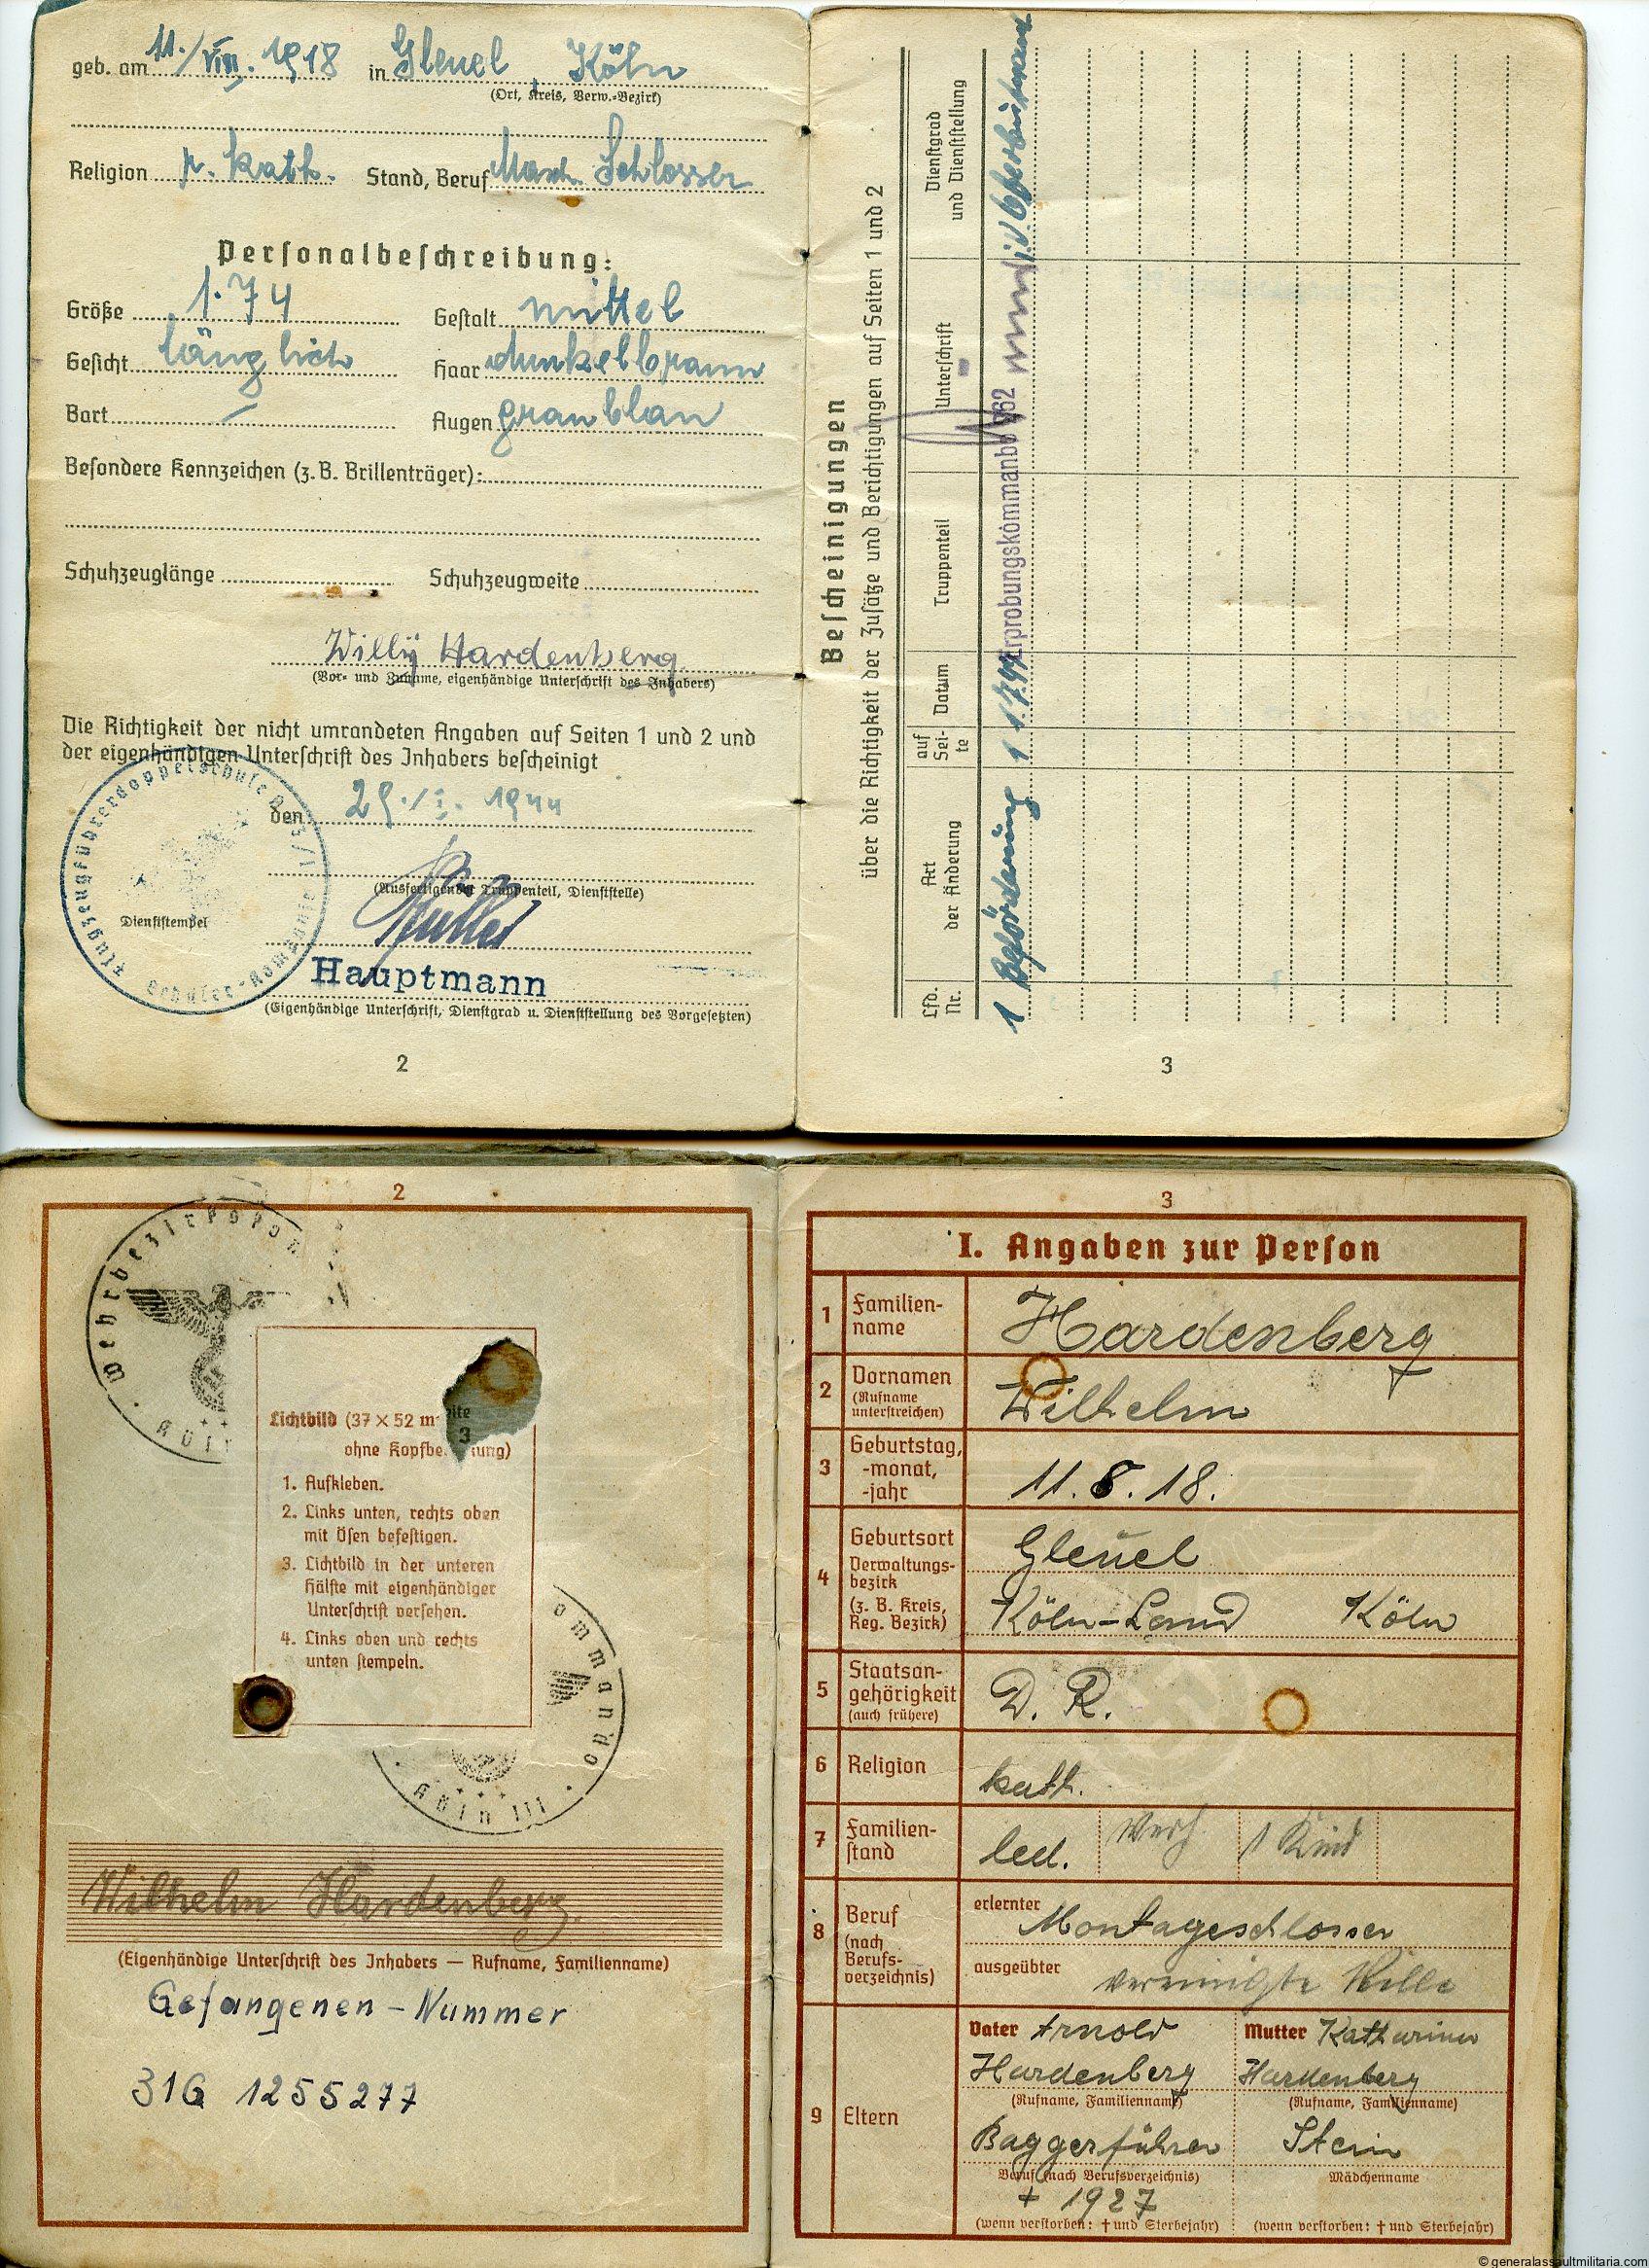 geb. am 11./VIII. 1918 in Gleuel, Köln
(Ort, Kreis, Verw.-Bezirk)
Religion r. kath. Stand, Beruf Masch. Schlosser
Personalbeschreibung:
Größe 1.74 Gestalt mittel
Gesicht länglich Haar dunkelbraun
Bart — Augen graublau
Besondere Kennzeichen (z. B. Brillenträger):
Schuhzeuglänge Schuhzeugweite
Willÿ Hardenberg
(Vor- und Zuname, eigenhändige Unterschrift des Inhabers)
Die Richtigkeit der nicht umrandeten Angaben auf Seiten 1 und 2 und
der eigenhändigen Unterschrift des Inhabers bescheinigt
Flugzeugführerdoppelschule
Schüler-Kompanie
Dienststempel
den 1944
(Ausfertigender Truppenteil, Dienststelle)
Hauptmann
(Eigenhändige Unterschrift, Dienstgrad u. Dienststellung des Vorgesetzten)
2
Bescheinigungen
über die Richtigkeit der Zusätze und Berichtigungen auf Seiten 1 und 2
Lfd. Nr.
Art der Änderung
auf Sei- te
Datum
Truppenteil
Unterschrift
Dienstgrad und Dienststellung
1 Beförderung 1 1.7.44 Erprobungskommando
3
2
Wehrbezirkskom
Köln
Lichtbild (37 × 52 m
ite
3
ohne Kopfbe ung)
1. Aufkleben.
2. Links unten, rechts oben
mit Ösen befestigen.
3. Lichtbild in der unteren
Hälfte mit eigenhändiger
Unterschrift versehen.
4. Links oben und rechts
unten stempeln.
ommando
Köln III
Wilhelm Hardenberg
(Eigenhändige Unterschrift des Inhabers — Rufname, Familienname)
Gefangenen-Nummer
31G 1255277
3
I. Angaben zur Person
1 Familien-
name
Hardenberg
2 Vornamen
(Rufname
unterstreichen)
Wilhelm
3 Geburtstag,
-monat,
-jahr
11. 8. 18.
4 Geburtsort
Verwaltungs-
bezirk
(z. B. Kreis,
Reg. Bezirk)
Gleuel
Köln-Land Köln
5 Staatsan-
gehörigkeit
(auch frühere)
D. R.
6 Religion
kath.
7 Familien-
stand
led. Verh 1 Kind
8 Beruf
(nach
Berufs-
verzeichnis)
erlernter
Montageschlosser
ausgeübter
vereinigte Ville
9 Eltern
Vater Arnold
Hardenberg
(Rufname, Familienname)
Baggerführer
Beruf (nach Berufsverzeichnis)
+ 1927
(wenn verstorben: † und Sterbejahr)
Mutter Katharina
Hardenberg
(Rufname, Familienname)
Stein
Mädchenname
(wenn verstorben: † und Sterbejahr)
© generalassaultmilitaria.com